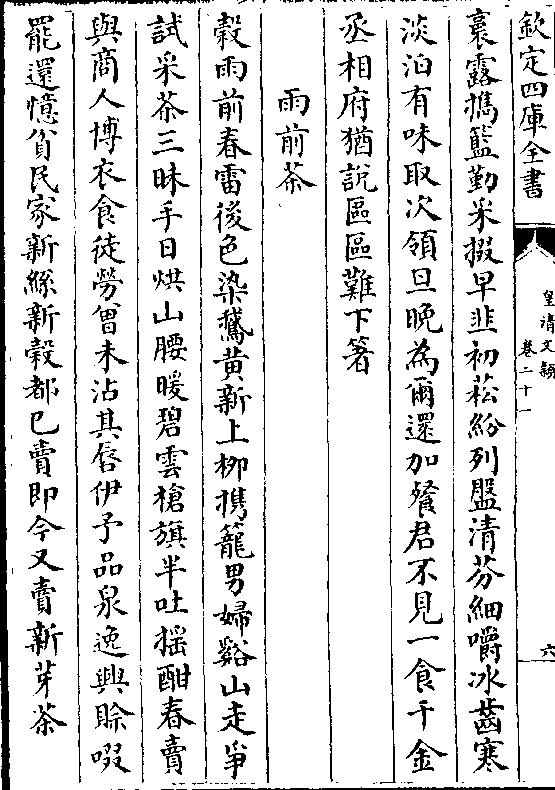 欽定四庫全書
皇清文穎
卷二十一
六
裛露攜籃勤采掇早韭初菘紛列盤清芬細嚼冰齒寒
淡泊有味取次領旦晚為爾還加餐君不見一食千金
丞相府猶說區區難下箸
雨前茶
穀雨前春雷後色染鵞黃新上柳携籠男婦谿山走爭
試采茶三昧手日烘山腰暖碧雲槍旗半吐揺酣春賣
與商人博衣食徒勞曾未沾其唇伊予品泉逸興賖啜
罷還憶貧民家新絲新穀都已賣即今又賣新芽茶